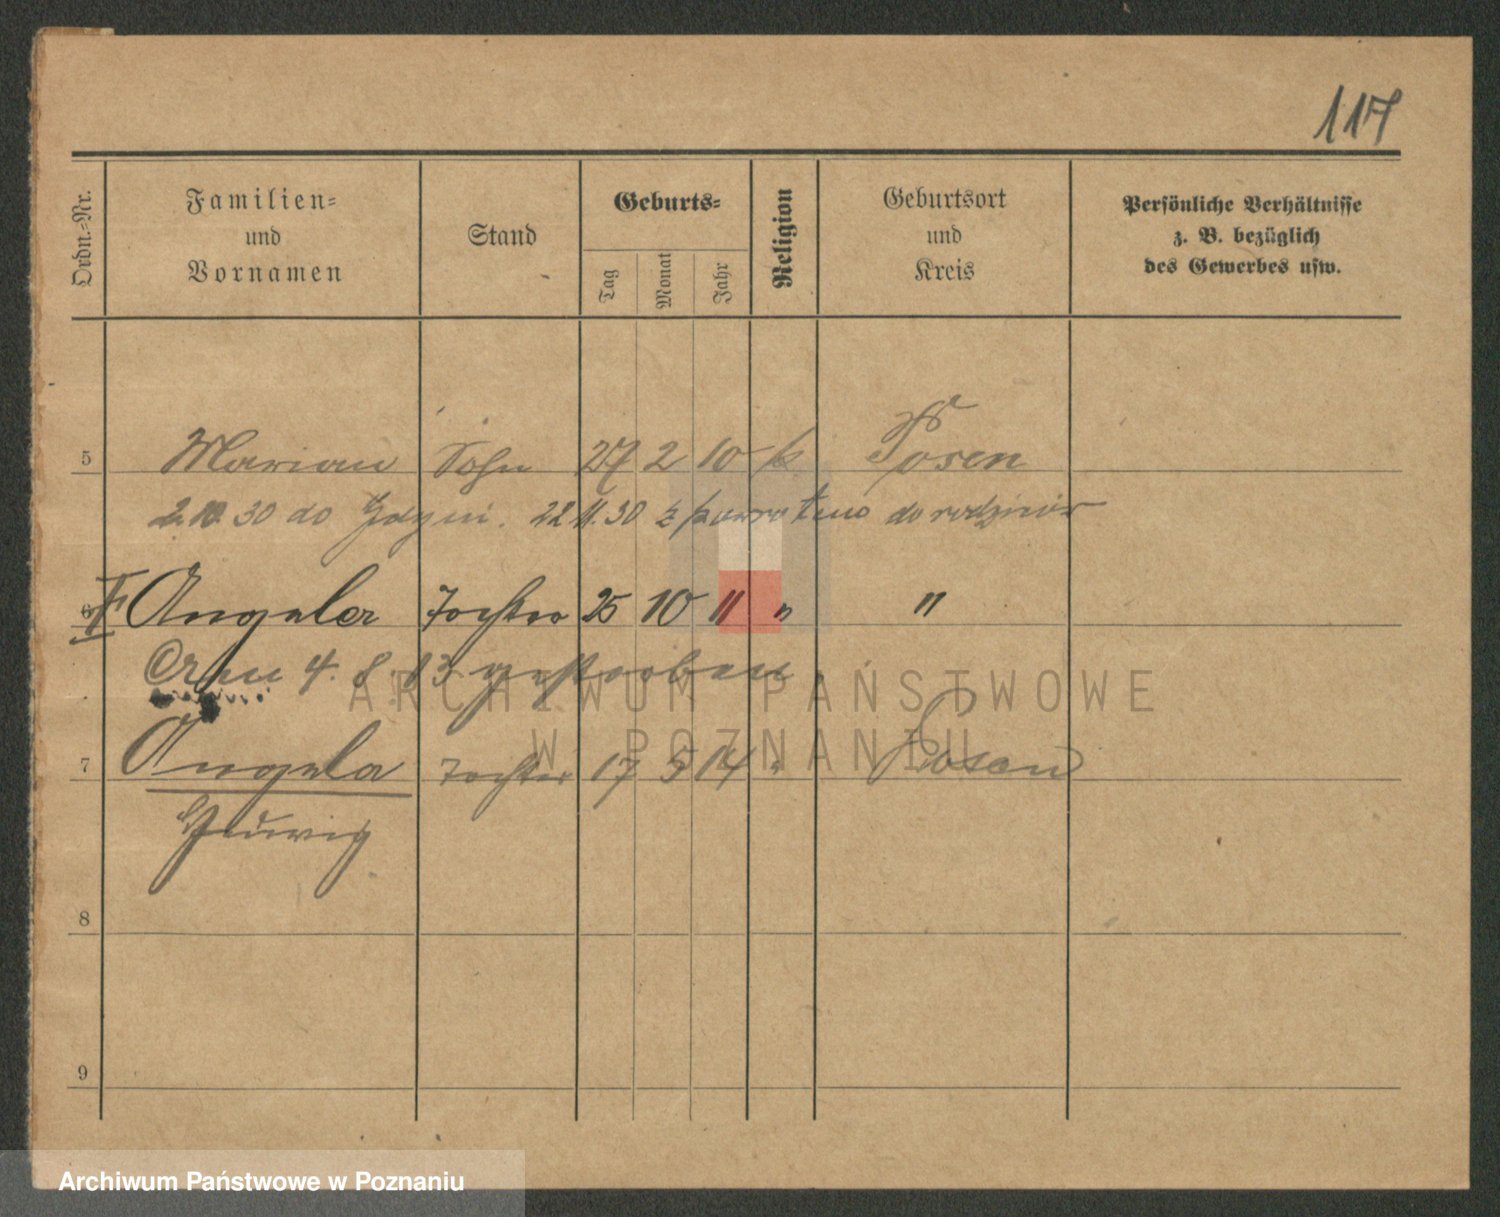 117
Ordn.-Nr. Familien- und Vornamen Stand Geburts- Tag Monat Jahr Religion Geburtsort und Kreis Persönliche Verhältnisse z. B. bezüglich des Gewerbes usw.
5 Marian Sohn 27 2 10 k Posen
2.10.30 do Gdyni. 22.11.30 z powrotem do rodziców
6 Angela Tochter 25 10 11 " "
Am 4. 8. 13 gestorben
7 Angela Tochter 17 5 14 " Posen
Hedwig
8
9
ARCHIWUM PAŃSTWOWE
W POZNANIU
Archiwum Państwowe w Poznaniu